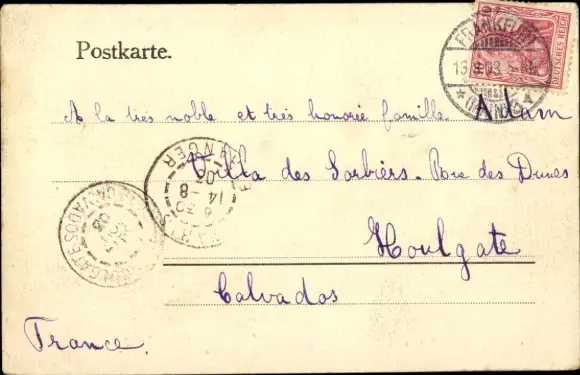 Postkarte.
FRANKFURT
DEUTSCHES REICH
A la très noble et très honorée famille Adam
Villa des Sorbiers. Rue des Dunes
Houlgate
Calvados
France.
PARIS ETRANGER
6 30
14 - 8
03
HOULGATE
CALVADOS